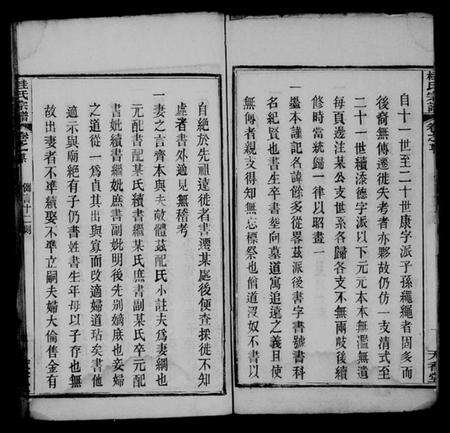 自十一世至二十世康字派子孫繩繩者固多而
後裔無傳遷徙失考者亦夥故仍仿一支清式至
二十一世續漆德字派以下元元本本無濫無遺
每頁邊注某公支世系各歸各支不無兩歧後續
修時當統歸一律以昭畫一
一繼本謹記名諱餘多從畧茲派後書字書號書科
名紀賢也書生卒書塋向墓道寓追遠之義且使
無傳者親支得知無忘標祭也倘道沒奴不書以
自絶於先祖遠徙者書遷某處後便查探徙不知
處者書外遊見無稽考
一妻之言齊本與夫敵體茲配氏小註夫爲妻綱也
元配書配某氏續書繼某氏庶書副某氏卒元配
書妣續書繼妣庶書副妣明後先别嫡庶也妾婦
之道從一爲貞其出與寡而改適婦道玷矣書他
適示與廟絶有子仍書姓書生年母以子存也無
故出妻者不準續娶不準立嗣夫婦大倫售金有
桂氏宗譜